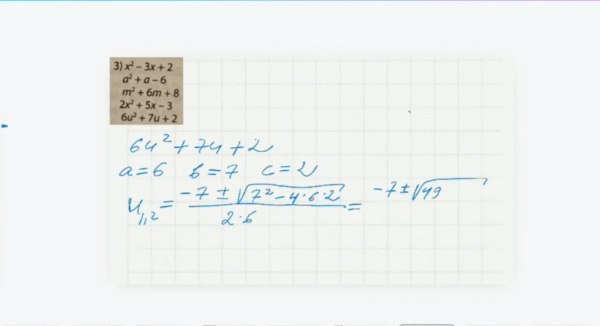 3) x² – 3x + 2
a² + a – 6
m² + 6m + 8
2x² + 5x – 3
6u² + 7u + 2
6u² + 7u + 2
a = 6 b = 7 c = 2
u₁,₂ = (–7 ± √(7² – 4·6·2)) / (2·6) = –7 ± √49